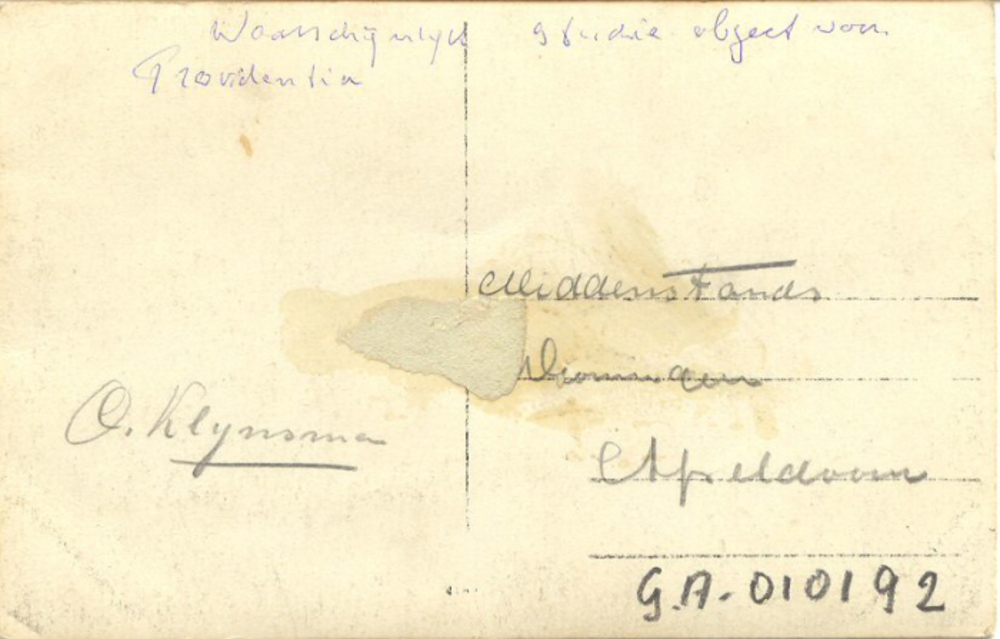 Waarschijnlijk studie object voor
Providentia
Middenstands
Woningen
Apeldoorn
O. Klynsma
G.A. - 010192